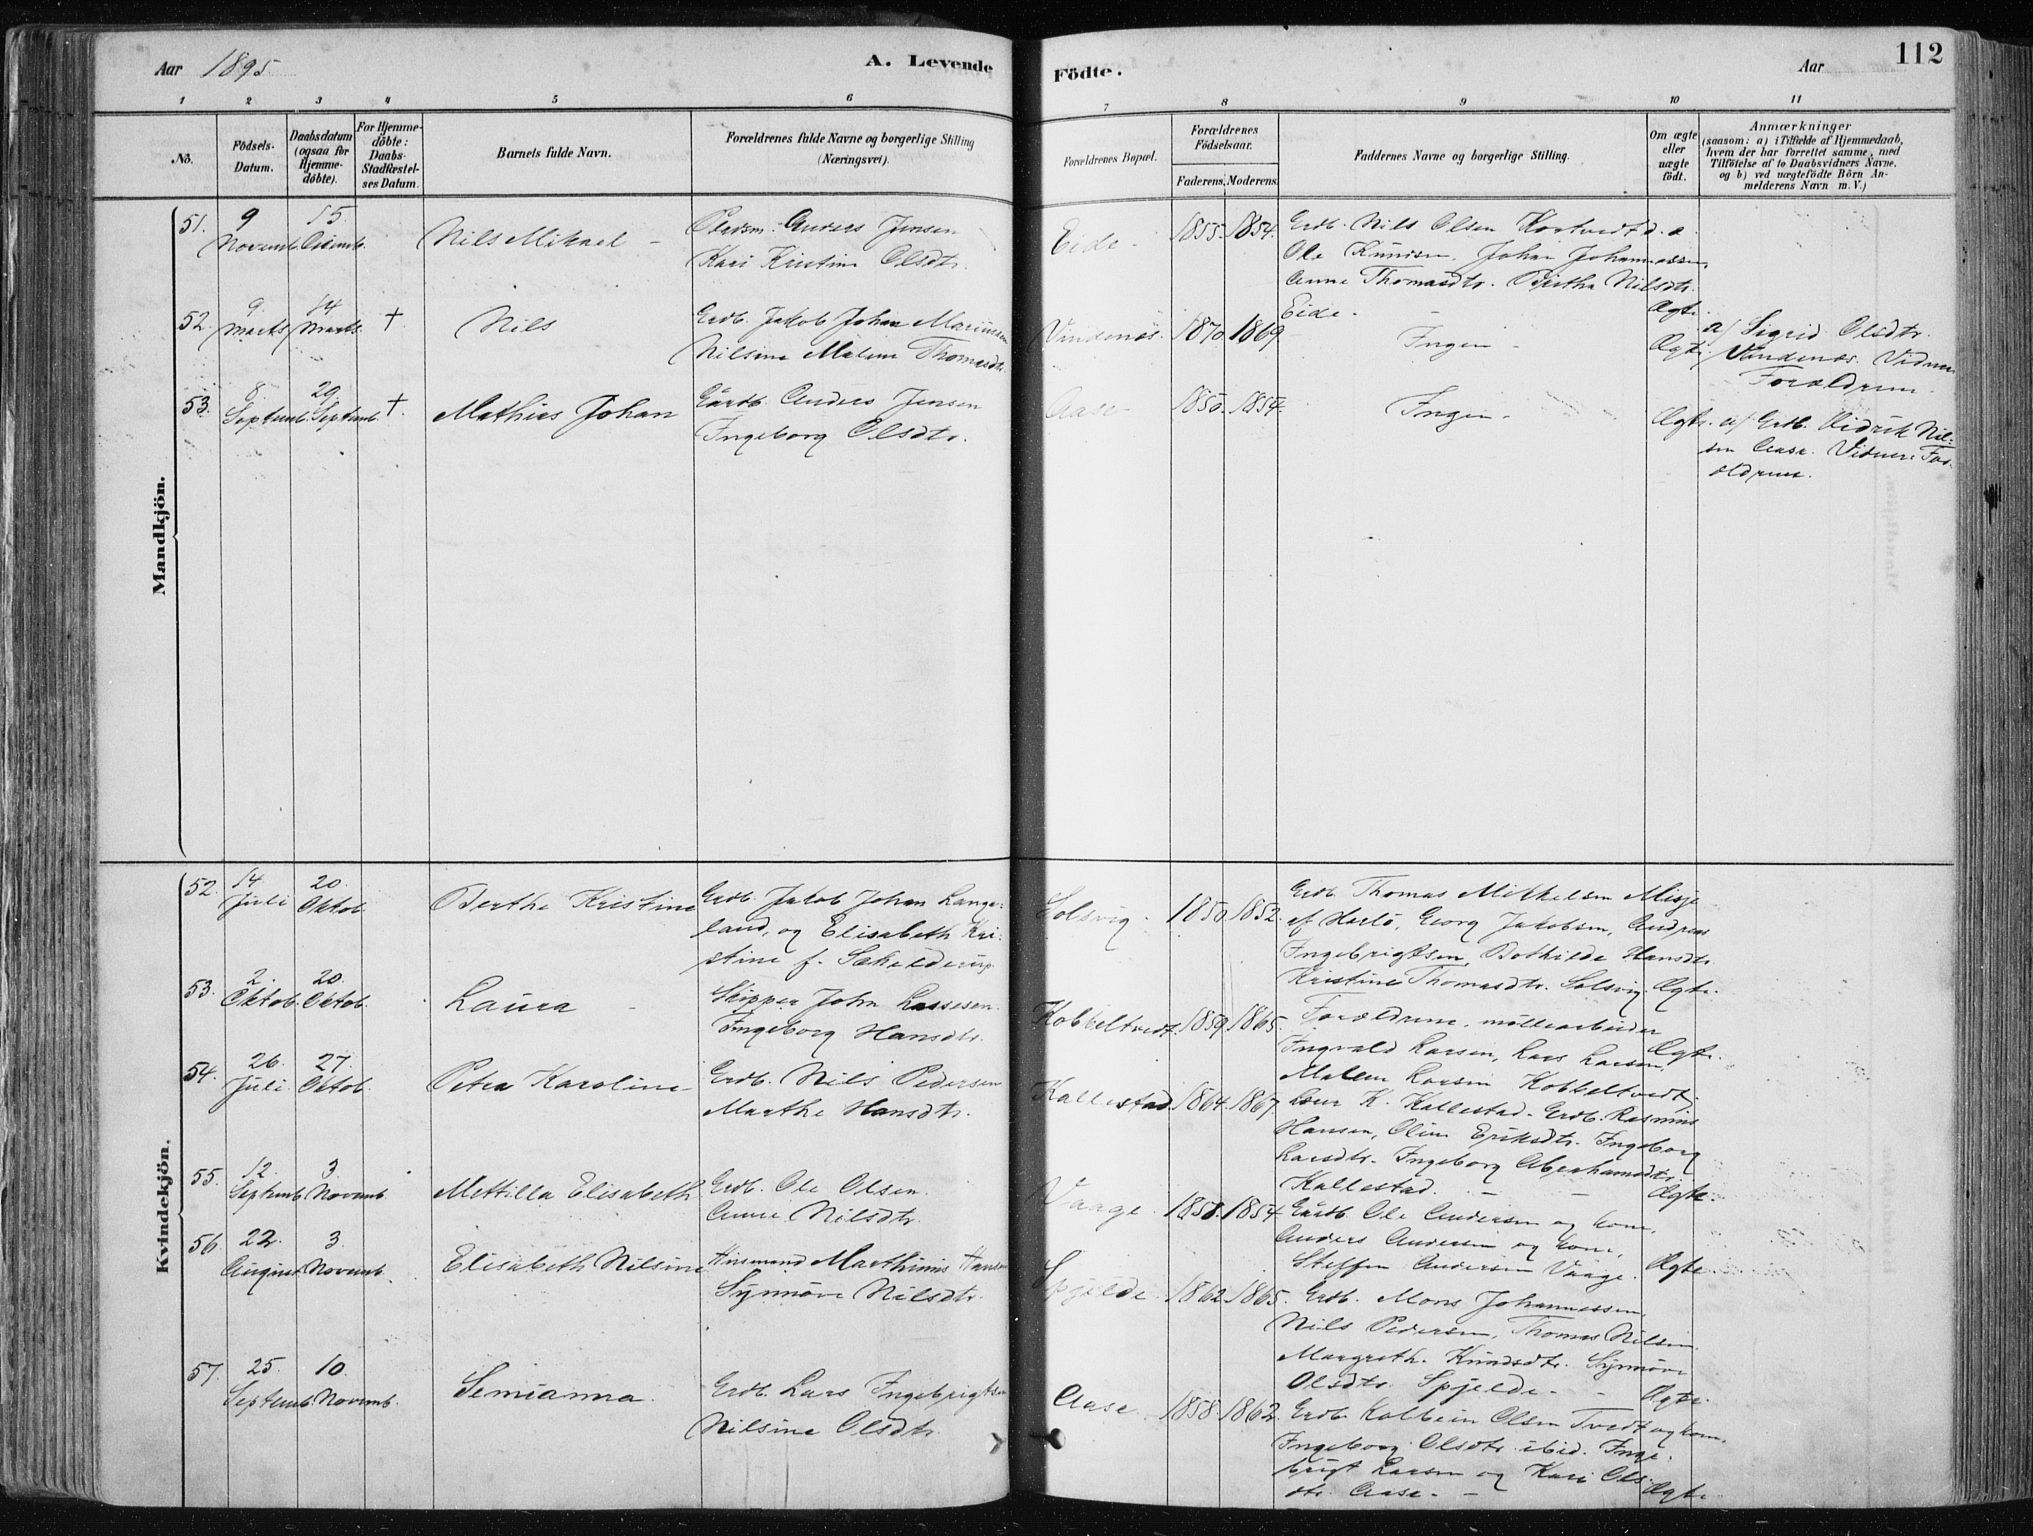 Aar 1895
A. Levende
Födte.
Aar
112
1 2 3 4 5 6 7 8 9 10 11
No.
Födsels-
Datum.
Daabsdatum
(ogsaa for
Hjemme-
döbte).
For Hjemme-
döbte:
Daabs-
Stadfæstel-
ses Datum.
Barnets fulde Navn.
Forældrenes fulde Navne og borgerlige Stilling
(Næringsvei).
Forældrenes Bopæl.
Forældrenes
Födselsaar.
Faderens. Moderens.
Faddernes Navne og borgerlige Stilling.
Om ægte
eller
uægte
födt.
Anmærkninger
(saasom: a) i Tilfælde af Hjemmedaab,
hvem der har forrettet samme, med
Tilföielse af to Daabsvidners Navne,
og b) ved uægtefödte Börn An-
melderens Navn m. V.)
Mandkjön.
51. 9 Novemb. 15 Nils Mikael -
Anders Jensen
Kari Kristine Olsdtr.
Eide - 1855. 1854.
Grdb. Nils Olsen
Ole Knudsen, Johan Johannessen,
Anne Thomasdtr. Bertha Nilsdtr.
Eide. - Ægte.
52. 9 Marts 14 Marts. † Nils
Grdb. Jakob Johan Mariussen
Nilsine Malene Thomasdtr.
Vindenes. 1870. 1869.
Ingen - Ægte
a/ Sigrid Olsdtr.
Vindenes. Vidner
Forældrene.
53. 8 Septemb. 29 Septemb. †. Mathias Johan
Gårdb. Anders Jensen
Ingeborg Olsdtr.
Aase - 1850. 1854.
Ingen. Ægte.
a/ Grdb. Didrik Nil-
sen Aase. Vidner: For-
ældrene.
Kvindekjön.
52. 14 Juli 20. Oktob. Berthe Kristine
Grdb. Jakob Johan Lange-
land, og Elisabeth Kri-
stine f.
Solsvig. 1850. 1852.
Grdb. Thomas Mikkelsen Misje
af Herlö, Georg Jakobsen, Andreas
Ingebrigtsen, Bothilde Hansdtr.
Kristine Thomasdtr. Solsvig. Ægte.
53. 2. Oktob. 20. Oktob. Laura -
Skipper John Lassesen.
Ingeborg Hansdtr.
Kobbeltvedt. 1859. 1865.
Forældrene, möllearbeider
Ingvald Larsen, Lars Larsen,
Malene Larsen Kobbeltvedt. Ægte.
54. 26. Juli. 27. Oktob. Petra Karoline
Grdb. Nils Pedersen
Marthe Hansdtr.
Kallestad 1864. 1867.
K. Kallestad. Grdb. Rasmus
Hansen, Oline Eriksdtr. Ingeborg
Larsdtr. Ingeborg Abrahamsdtr.
Kallestad. - - Ægte.
55. 12. Septemb. 3. Novemb. Mettilla Elisabeth
Grdb. Ole Olsen.
Anne Nilsdtr.
Vaage. 1858. 1854.
Gårdb. Ole Andersen og kone,
Anders Andersen og kone,
Steffen Andersen Vaage. Ægte
56. 22. August. 3. Novemb. Elisabeth Nilsine
Husmand Marthinus Hansen
Synnöve Nilsdtr.
Spjelde. 1862. 1865.
Grdb. Mons Johannessen
Nils Pedersen, Thomas Nilsen
Margreth. Knudsdtr. Synnöve
Olsdtr. Spjelde - - Ægte.
57. 25. Septemb. 10. Novemb. Semianna.
Grdb. Lars Ingebrigtsen
Nilsine Olsdtr.
Aase. 1858. 1862.
Grdb. Kolbein Olsen Tvedt og kone.
Ingeborg Olsdtr. ibid. Inge-
brigt Larsen og Kari Ols-
dtr. Aase. - Ægte.